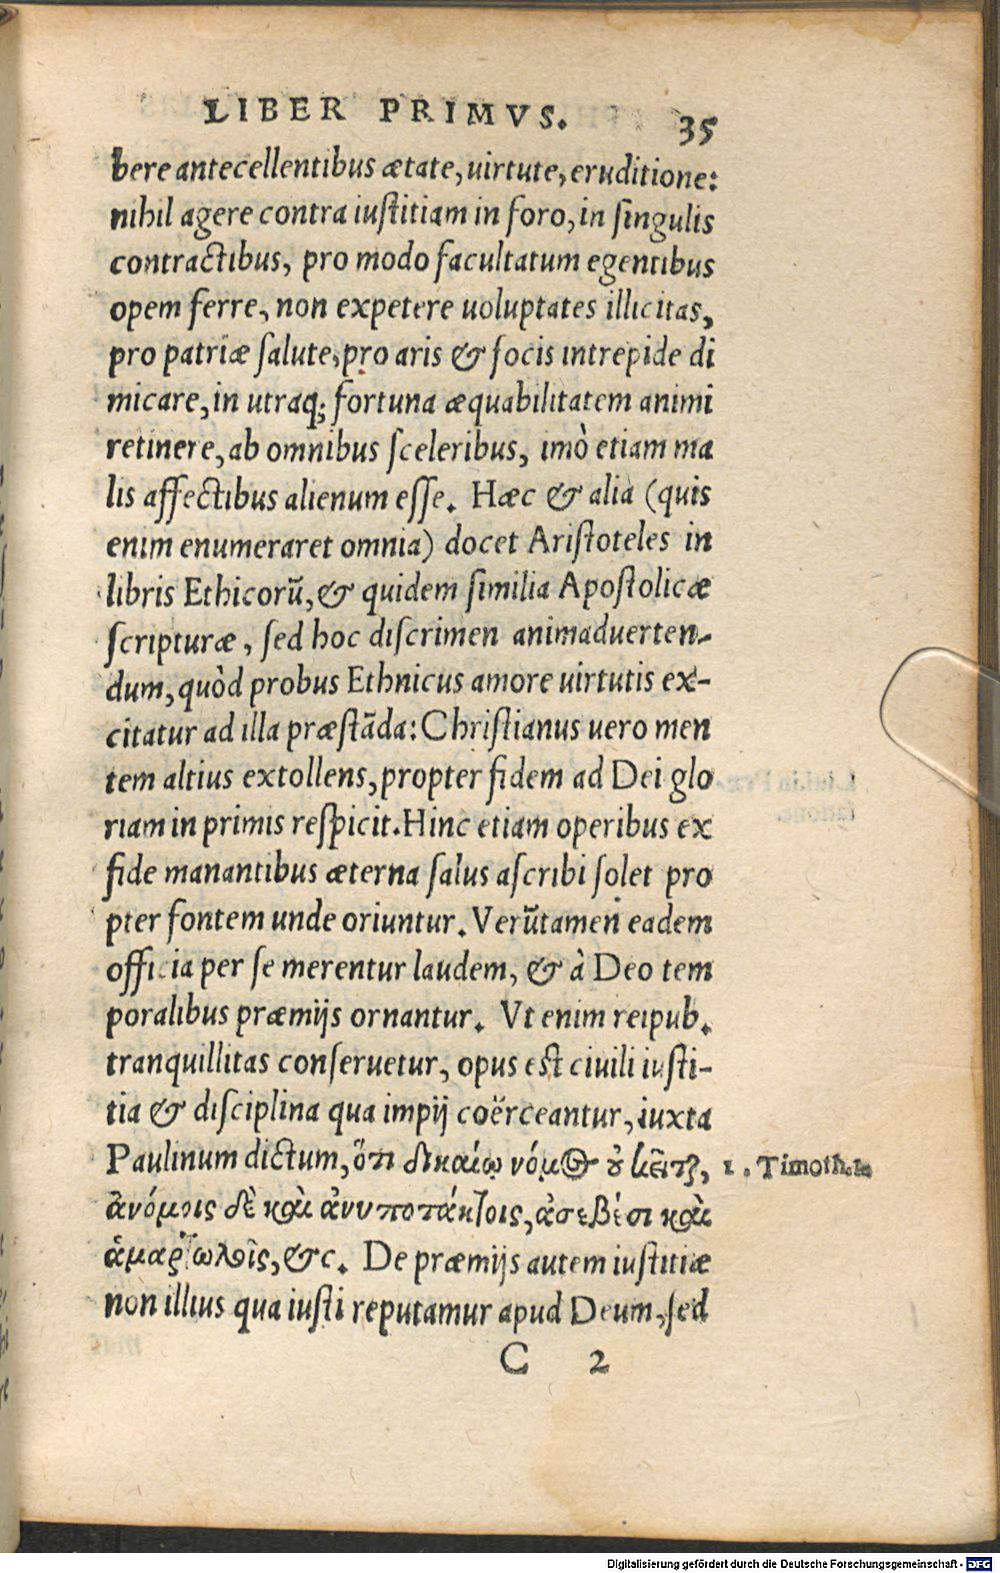 LIBER PRIMVS. 35
bere antecellentibus ætate, uirtute, eruditione:
nihil agere contra iuſtitiam in foro, in ſingulis
contractibus, pro modo facultatum egentibus
opem ferre, non expetere uoluptates illicitas,
pro patriæ ſalute, pro aris & focis intrepide di
micare, in utraq; fortuna æquabilitatem animi
retinere, ab omnibus ſceleribus, imò etiam ma
lis affectibus alienum eſſe. Hæc & alia (quis
enim enumeraret omnia) docet Ariſtoteles in
libris Ethicorũ, & quidem ſimilia Apoſtolicæ
ſcripturæ, ſed hoc diſcrimen animaduerten-
dum, quòd probus Ethnicus amore uirtutis ex-
citatur ad illa præſtãda: Chriſtianus uero men
tem altius extollens, propter fidem ad Dei glo
riam in primis reſpicit. Hinc etiam operibus ex
fide manantibus æterna ſalus aſcribi ſolet pro
pter fontem unde oriuntur. Verũtamen eadem
officia per ſe merentur laudem, & à Deo tem
poralibus præmijs ornantur. Vt enim reipub.
tranquillitas conſeruetur, opus eſt ciuili iuſti-
tia & diſciplina qua impij coërceantur, iuxta
Paulinum dictum, ὅτι δικαίῳ νόμος οὐ κεῖται, 1. Timoth. 1.
ἀνόμοις δὲ καὶ ἀνυποτάκτοις, ἀσεβέσι καὶ
ἁμαρτωλοῖς, &c. De præmijs autem iuſtitiæ
non illius qua iuſti reputamur apud Deum, ſed
C 2
Digitalisierung gefördert durch die Deutsche Forschungsgemeinschaft - DFG